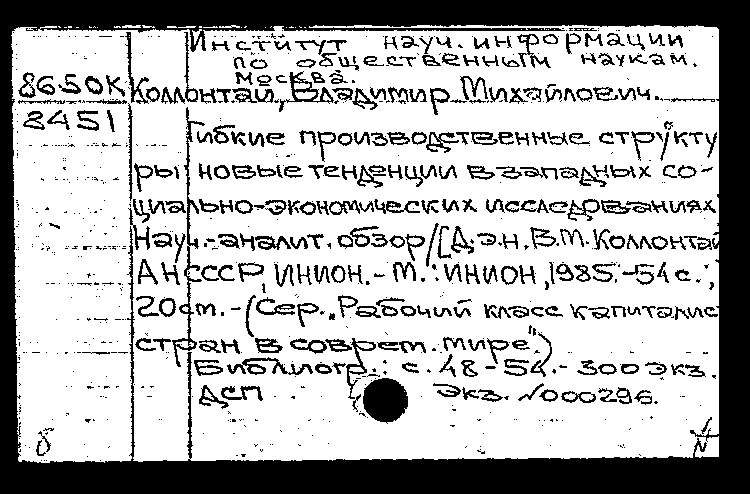 Институт науч. информации
по общественным наукам.
Москва.
86.50К Коллонтай, Владимир Михайлович.
8451
Гибкие производственные структу
ры: новые тенденции в западных со-
циально-экономических исследованиях.
Науч.-аналит. обзор/[Д.э.н. В.М. Коллонтай
АН СССР, ИНИОН. - М.: ИНИОН, 1985. - 54 с.;
20 cm. - (Сер. „Рабочий класс капиталис
стран в соврем. мире")
Библиогр.: с. 48 - 54. - 300 экз.
ДСП . Экз. №000296.
б